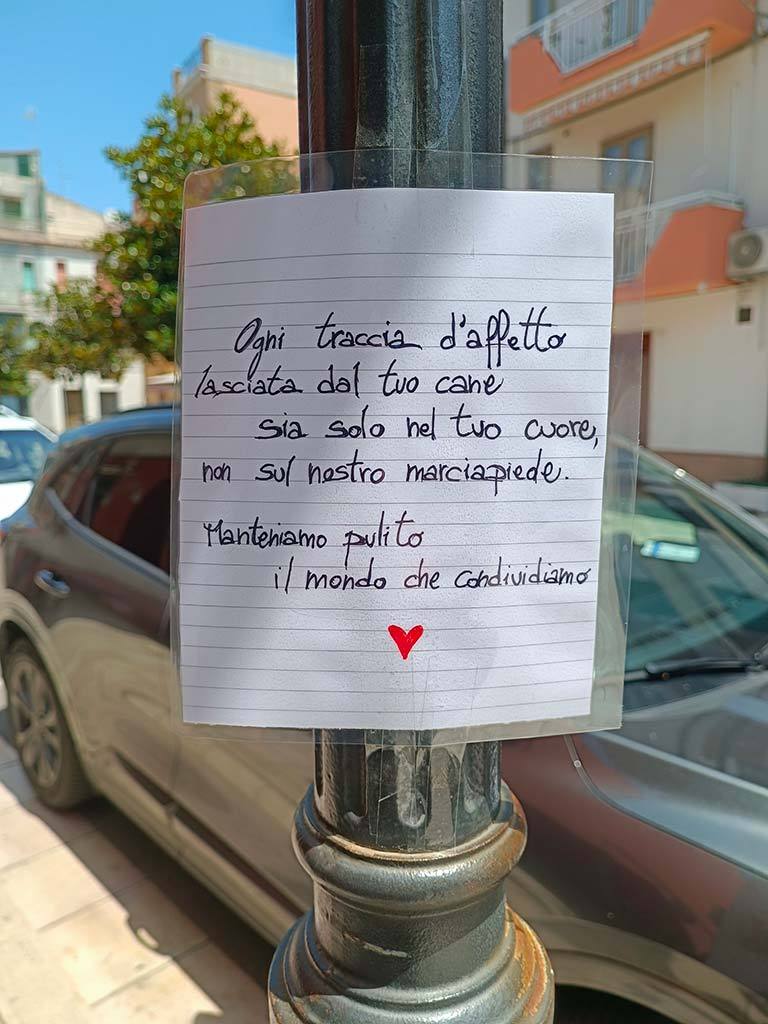 Ogni traccia d'affetto
lasciata dal tuo cane
sia solo nel tuo cuore,
non sul nostro marciapiede.
Manteniamo pulito
il mondo che condividiamo